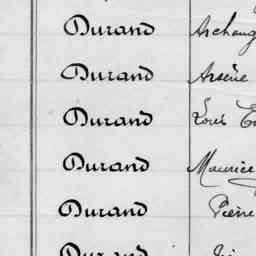 Durand Archang
Durand Arsène
Durand Louis
Durand Maurice
Durand Pierre
Durand